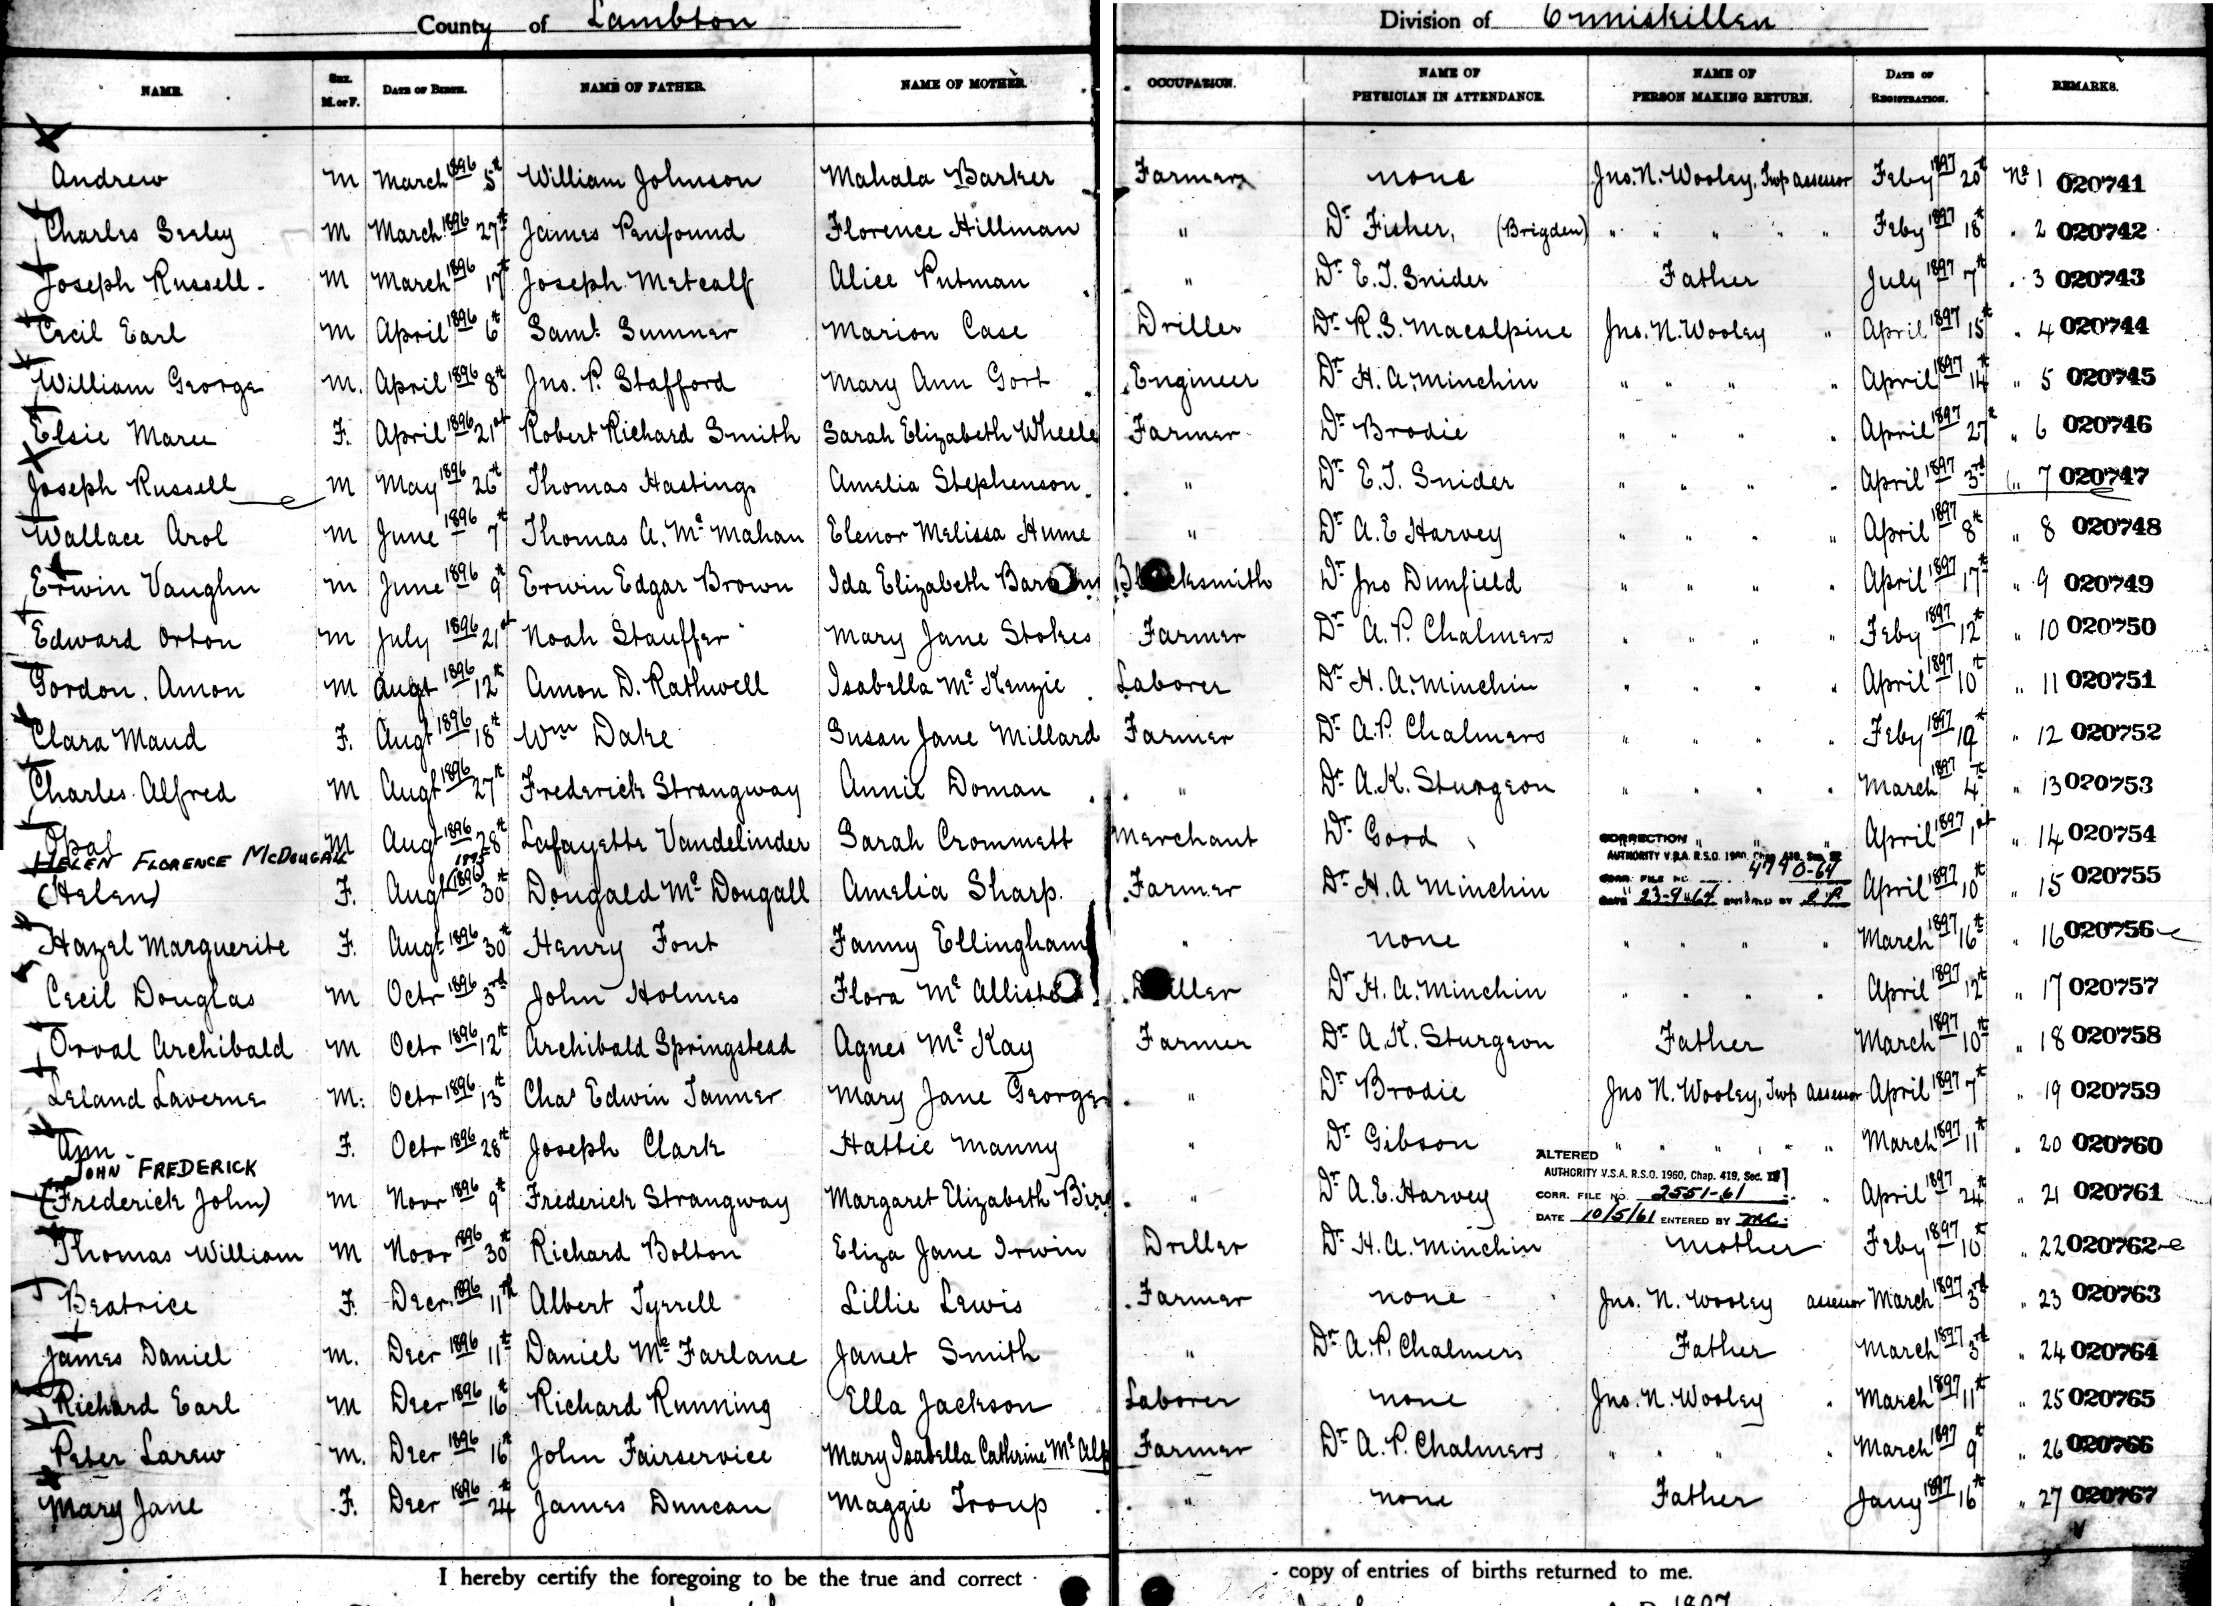 County of Lambton Division of Enniskillen
NAME. SEX. M. or F. DATE OF BIRTH. NAME OF FATHER. NAME OF MOTHER. OCCUPATION. NAME OF PHYSICIAN IN ATTENDANCE. NAME OF PERSON MAKING RETURN. DATE OF REGISTRATION. REMARKS.
Andrew M March 1896 5t William Johnson Mahala Barker Farmer none Jno. N. Wooley, Twp assessor Feby 1897 20t No 1 020741
Charles Seeley M March 1896 27t James Penfound Florence Hillman " Dr Fisher, (Brigden) " " " " " Feby 1897 18t " 2 020742
Joseph Russell M March 1896 17t Joseph Metcalf Alice Putman " Dr E. T. Snider Father July 1897 7t " 3 020743
Cecil Earl M April 1896 6t Saml. Sumner Marion Case Driller Dr R. S. Macalpine Jno. N. Wooley " April 1897 15t " 4 020744
William George M. April 1896 8t Jno. P. Stafford Mary Ann Gort Engineer Dr H. A. Minchin " " " " April 1897 14t " 5 020745
Elsie Marie F. April 1896 21st Robert Richard Smith Sarah Elizabeth Wheele Farmer Dr Brodie " " " " April 1897 27t " 6 020746
Joseph Russell M May 1896 26t Thomas Hastings Amelia Stephenson " Dr E. T. Snider " " " " April 1897 3rd " 7 020747
Wallace Arol M June 1896 7t Thomas A. Mc Mahan Elenor Melissa Hume " Dr A. E Harvey " " " " April 1897 8t " 8 020748
Erwin Vaughn M June 1896 9t Erwin Edgar Brown Ida Elizabeth Blacksmith Dr Jno Dunfield " " " " April 1897 17t " 9 020749
Edward Orton M July 1896 21st Noah Stauffer Mary Jane Stokes Farmer Dr A. P. Chalmers " " " " Feby 1897 12t " 10 020750
Gordon. Amon M Augt 1896 12t Amon D. Rathwell Isabella Mc Kenzie Laborer Dr H. A. Minchin " " " " April 1897 10t " 11 020751
Clara Maud F. Augt 1896 18t Wm Dake Susan Jane Millard Farmer Dr A. P. Chalmers " " " " Feby 1897 19t " 12 020752
Charles Alfred M Augt 1896 27t Frederick Strangway Annie Doman " Dr A. K. Sturgeon " " " " March 1897 4t " 13 020753
Opal M Augt 1896 28t Lafayette Vandelinder Sarah Crommett Merchant Dr Good " " " April 1897 1st " 14 020754
HELEN FLORENCE McDOUGALL 1895 CORRECTION
AUTHORITY V.S.A. R.S.O. 1960, Chap. 419, Sec.
CORR. FILE NO. 4790-64
(Helen) F. Augt (1896) 30t Dougald Mc Dougall Amelia Sharp. Farmer Dr H. A Minchin April 1897 10t " 15 020755
DATE 23-9-64 ENTERED BY
Hazel Marguerite F. Augt 1896 30t Henry Font Fanny Ellingham " none " " " " March 1897 16t " 16 020756
Cecil Douglas M Octr 1896 3rd John Holmes Flora Mc Alliste Driller Dr H. A. Minchin " " " " April 1897 12t " 17 020757
Orval Archibald M Octr 1896 12t Archibald Springstead Agnes Mc Kay Farmer Dr A. K. Sturgeon Father March 1897 10t " 18 020758
Leland Laverne M. Octr 1896 13t Chas Edwin Tanner Mary Jane George " Dr Brodie Jno N. Wooley, Twp Assessor April 1897 7t " 19 020759
Ann F. Octr 1896 28t Joseph Clark Hattie Manny " Dr Gibson " " " " " March 1897 11t " 20 020760
JOHN FREDERICK ALTERED
AUTHORITY V.S.A. R.S.O. 1960, Chap. 419, Sec.
(Frederick John) M Novr 1896 9t Frederick Strangway Margaret Elizabeth " Dr A. E. Harvey CORR. FILE NO. 2551-61 " April 1897 24t " 21 020761
DATE 10/5/61 ENTERED BY
Thomas William M Novr 1896 30t Richard Bolton Eliza Jane Irwin Driller Dr H. A. Minchin Mother Feby 1897 10t " 22 020762
Beatrice F. Decr 1896 11th Albert Tyrrell Lillie Lewis Farmer none Jno. N. Wooley assessor March 1897 3rd " 23 020763
James Daniel M. Decr 1896 11t Daniel Mc Farlane Janet Smith " Dr A. P. Chalmers Father March 1897 3rd " 24 020764
Richard Earl M Decr 1896 16t Richard Running Ella Jackson Laborer none Jno. N. Wooley " March 1897 11t " 25 020765
Peter Larew M. Decr 1896 16t John Fairservice Mary Isabella Cathrine Mc Alp Farmer Dr A. P. Chalmers " " " " March 1897 9t " 26 020766
Mary Jane F. Decr 1896 24t James Duncan Maggie Troup " none Father Jany 1897 16t " 27 020767
I hereby certify the foregoing to be the true and correct copy of entries of births returned to me.
1897